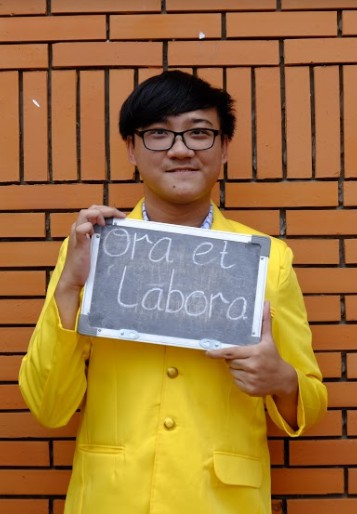 Ora et
Labora